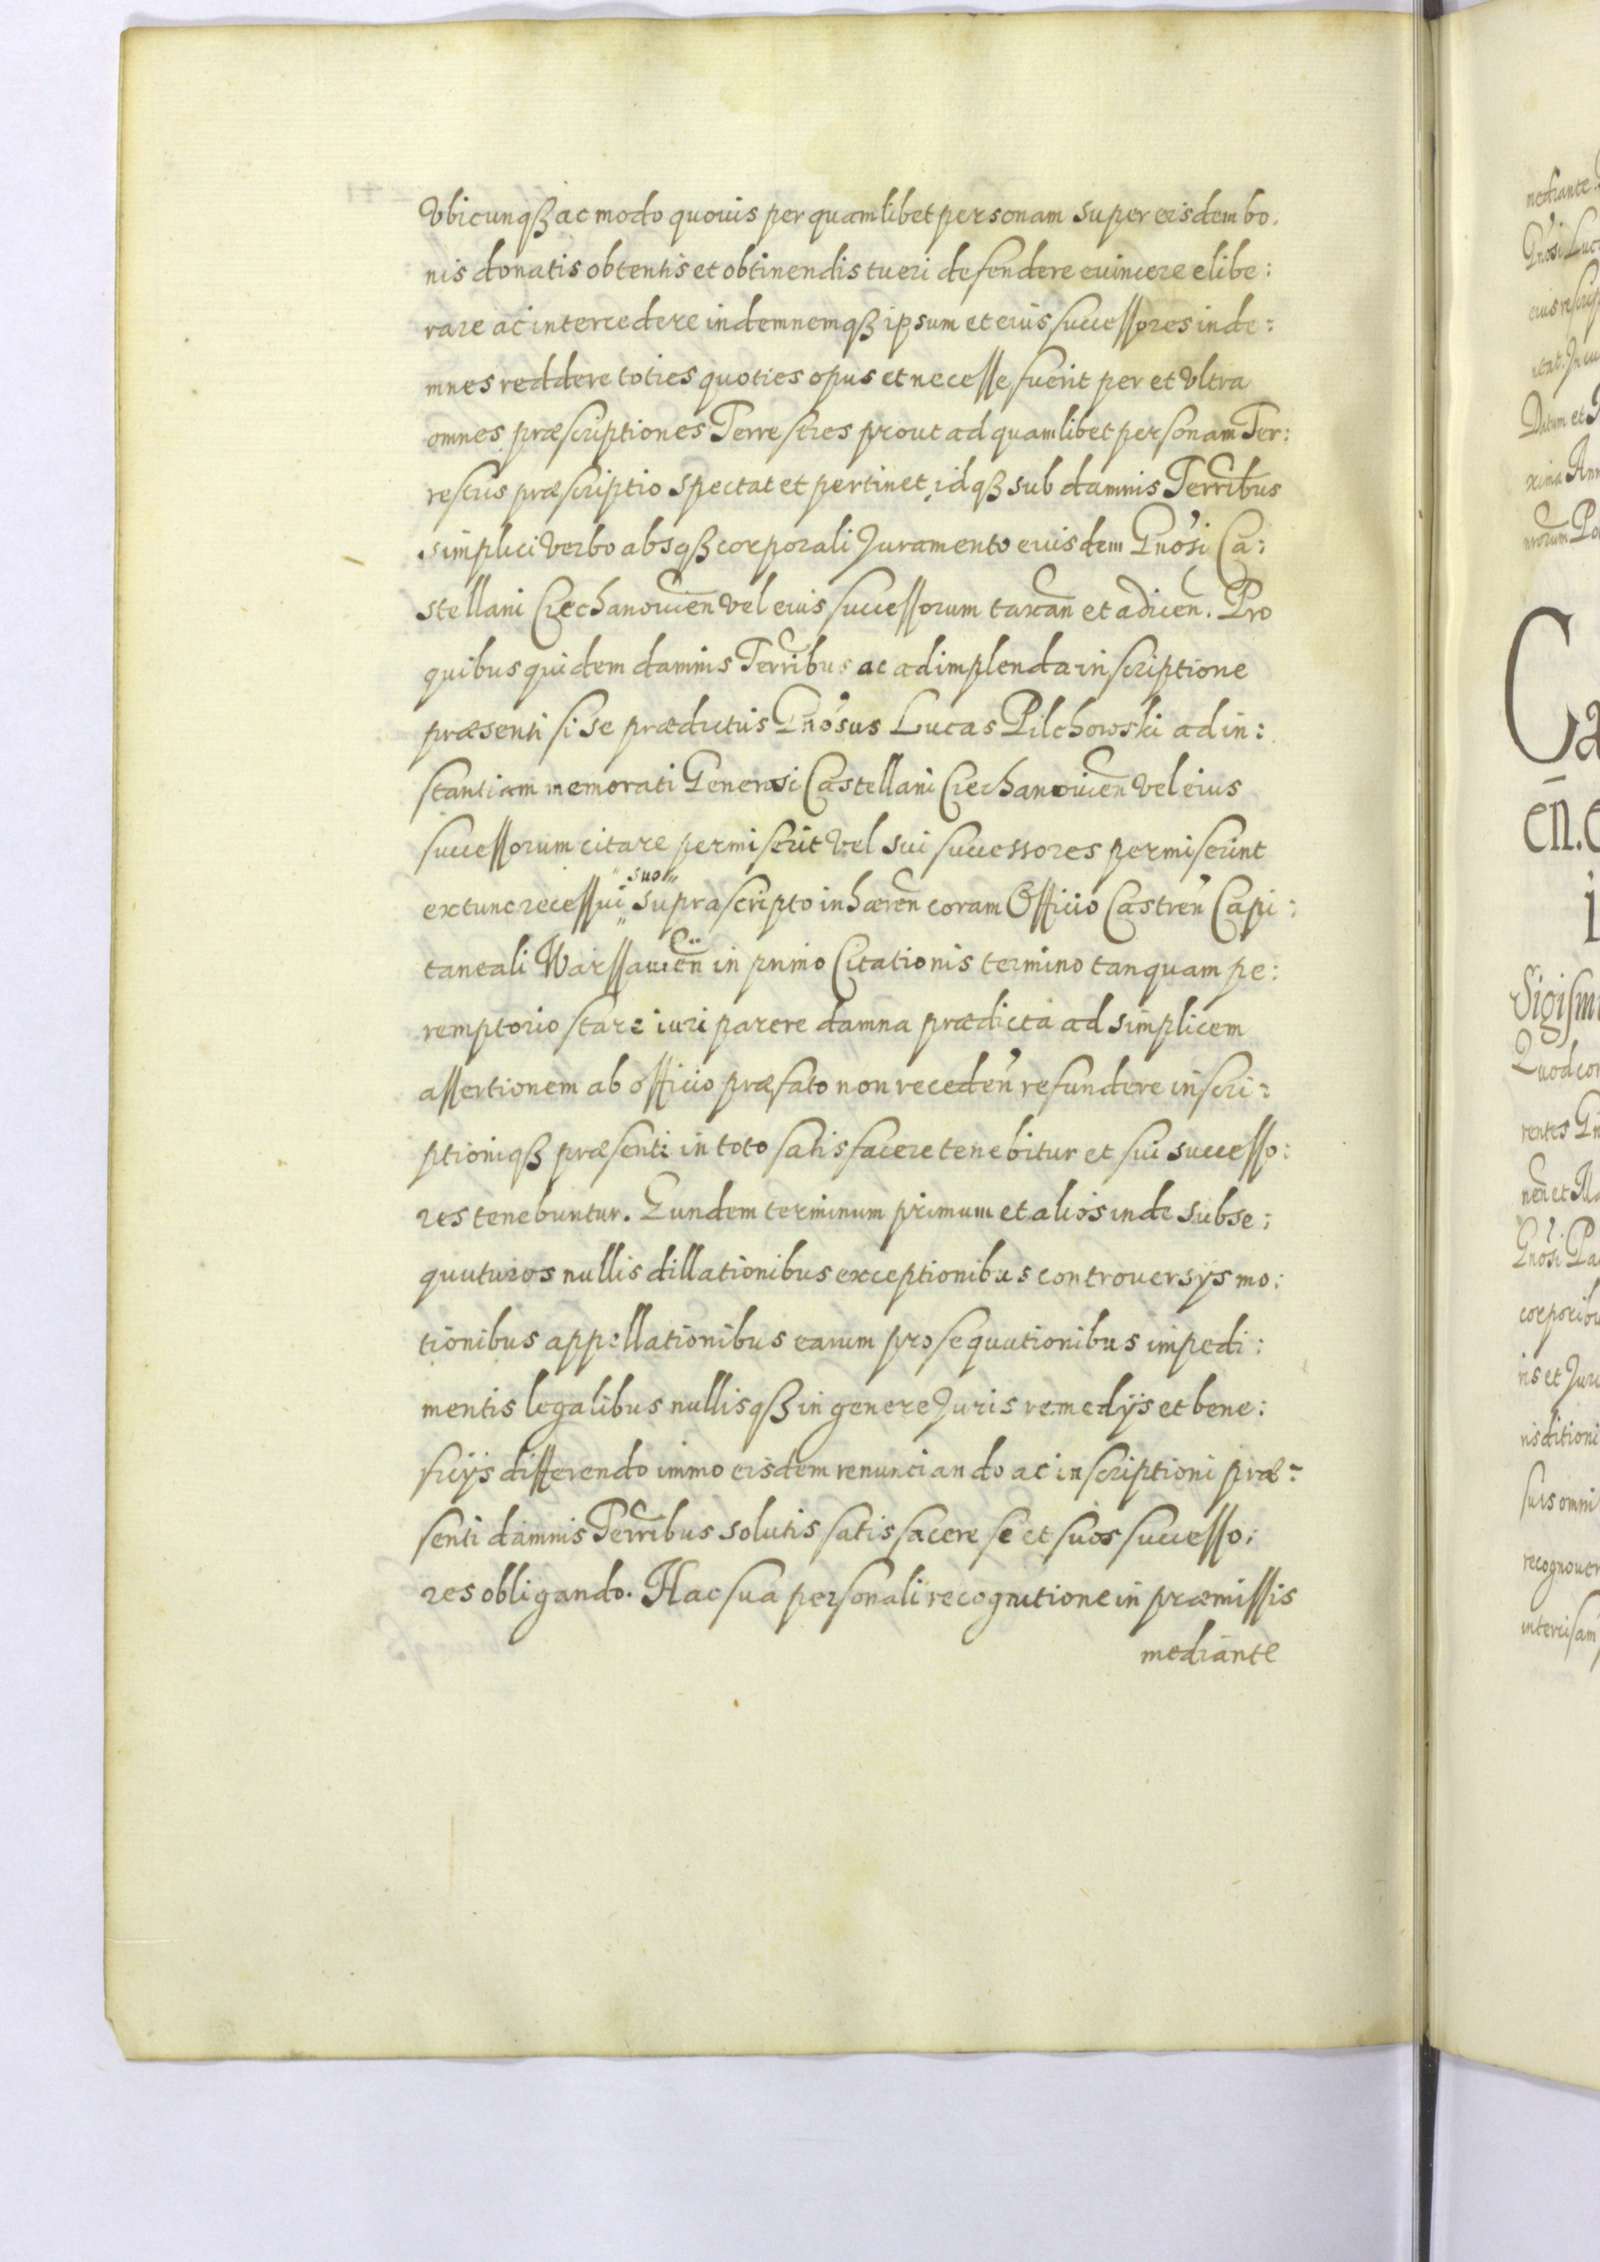 Vbicunqß ac modo quouis per quamlibet personam super eisdem bo.
nis donatis obtentis et obtinendis tueri defendere euincere elibe:
rare ac intercedere indemnemqß ipsum et eius successores inde:
mnes reddere toties quoties opus et necesse fuerit per et vltra
omnes præscriptiones Terrestres prout ad quamlibet personam Ter:
restris præscriptio spectat et pertinet, idqß sub damnis Terribus
simplici verbo absqß corporali Juramento eiusdem Gnosi Ca:
stellani Czechanouien vel eius successorum taxan et adicen. Pro
quibus quidem damnis Terribus ac adimplenda inscriptione
præsenti si se prædictus Gnosus Lucas Pilchowski ad in:
stantiam memorati Generosi Castellani Czechanouien vel eius
successorum citare permiserit vel sui successores permiserint
suo
extunc recessui suprascripto inhæren coram Officio Castren Capi:
taneali Warssauien in primo Citationis termino tanquam pe:
remptorio stare iuri parere damna prædicta ad simplicem
assertionem ab officio præfato non receden refundere inscri:
ptioniqß præsenti in toto satisfacere tenebitur et sui successo:
res tenebuntur. Eundem terminum primum et alios inde subse:
quuturos nullis dillationibus exceptionibus controuersÿs mo:
tionibus appellationibus earum prosequutionibus impedi:
mentis legalibus nullisqß in genere Juris remedÿs et bene:
ficÿs differendo immo eisdem renunciando ac inscriptioni præ:
senti damnis Terribus solutis satisfacere se et suos successo:
res obligando. Hac sua personali recognitione in præmissis
mediante